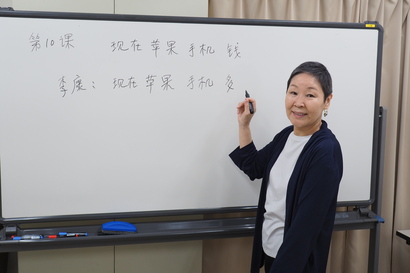 第10课 现在苹果手机 钱
李康: 现在苹果手机 多